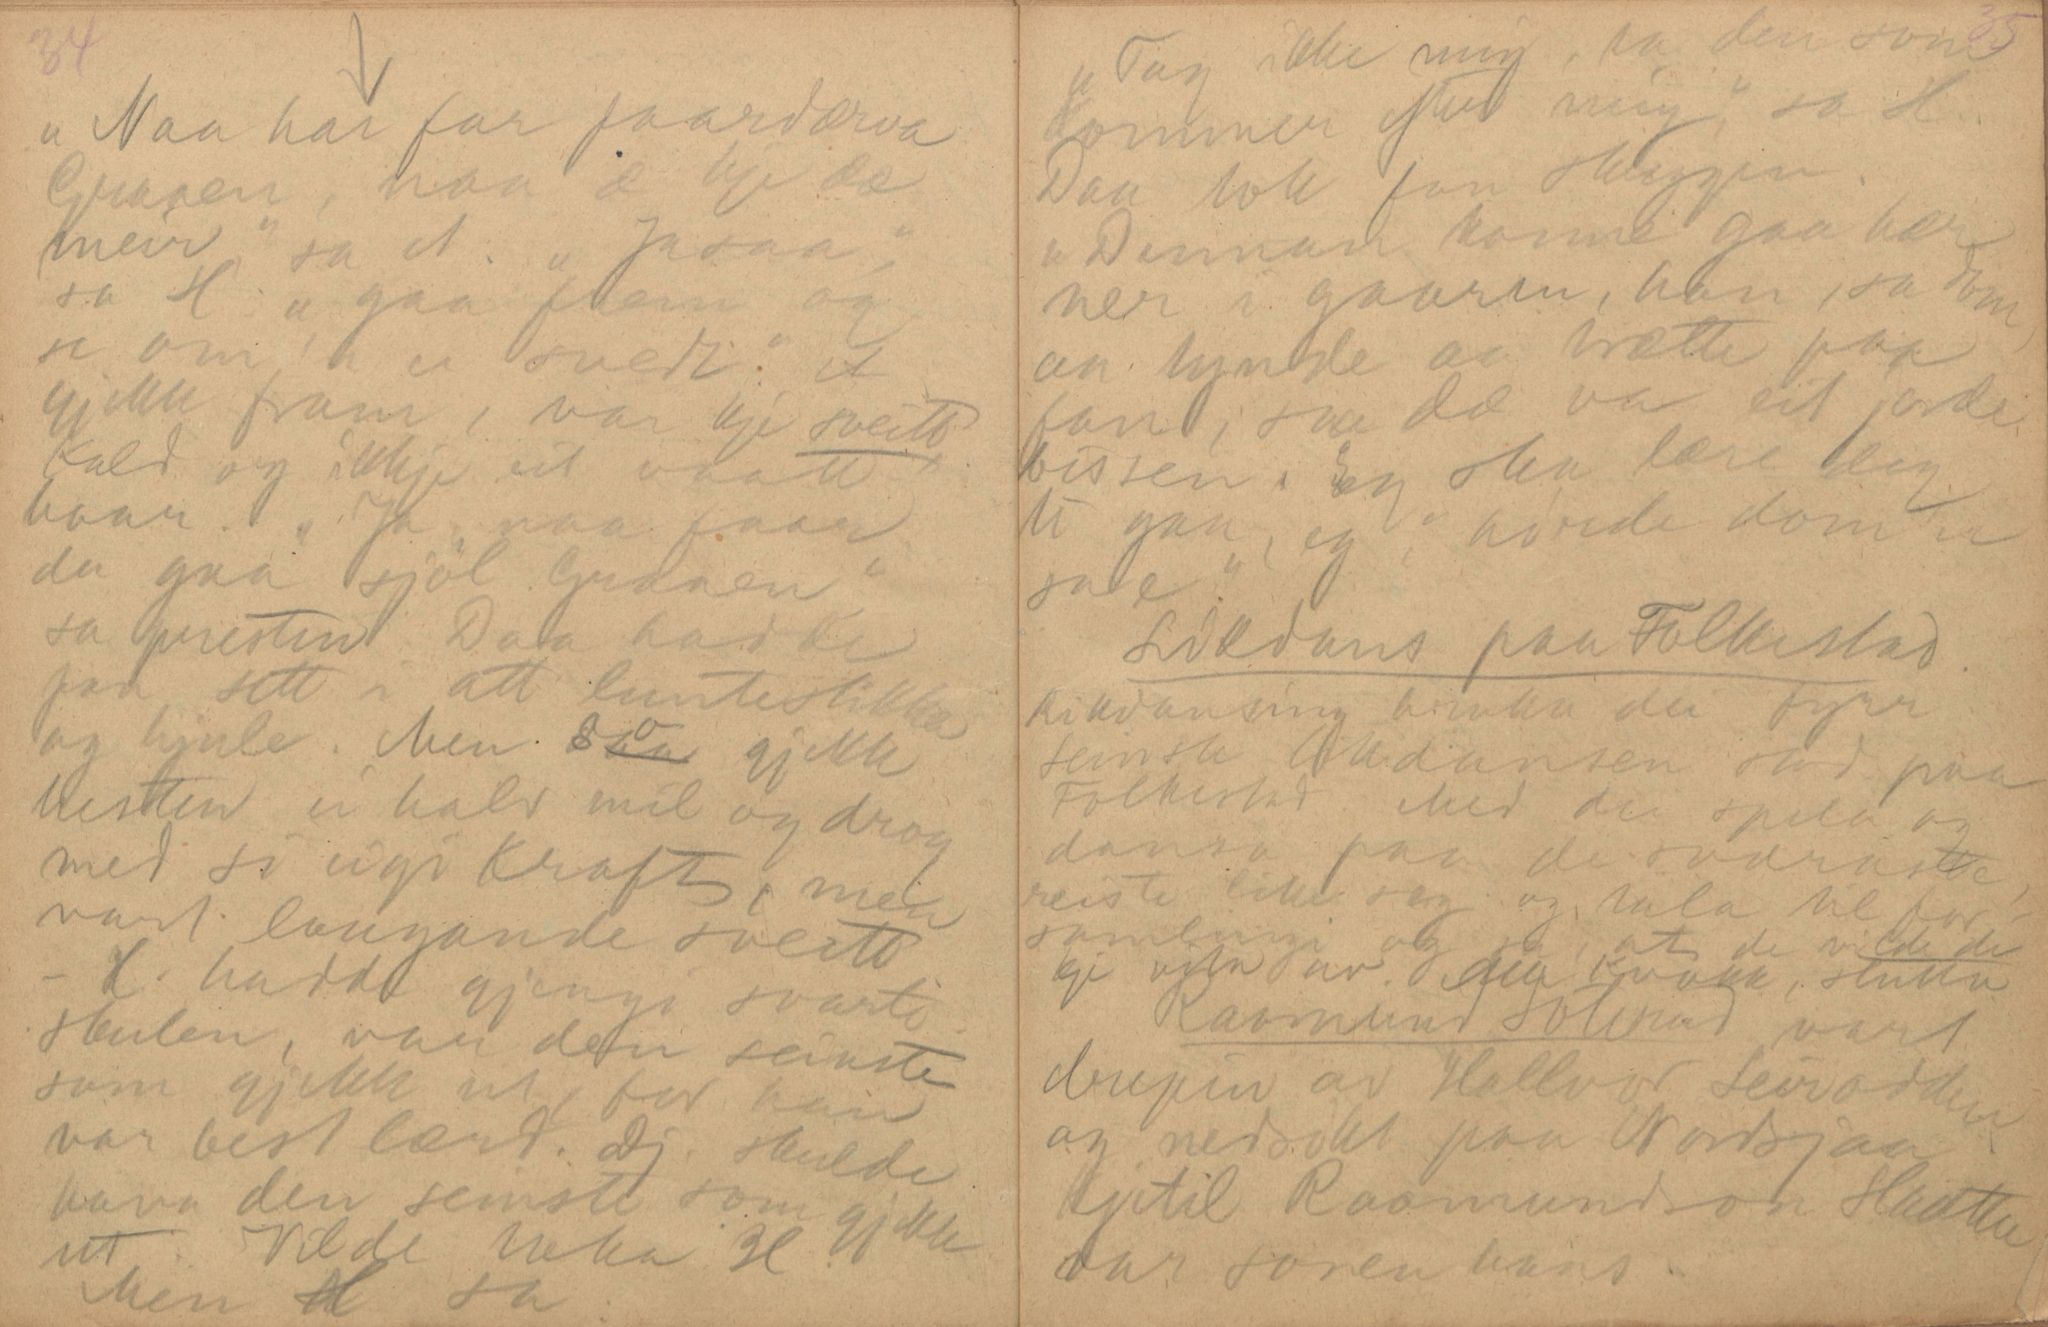 34
„Naa har far faardærva
Graaen, naa æ kje dæ
meir" sa et. „Jasaa",
sa H „gaa fram og
se om 'n e svedt." et
gjekk fram, var kje sveitt
Kald og ikkje eit vaatt
haar. „Ja, naa faar
du gaa sjøl Graaen"
sa presten. Daa hadde
paa sett i att luntestikka
og hjule. Men so gjekk
hesten ei halv mil og drog
med si eigi Kraft, men
vart laugande sveitt
- H. hadde gjengi svarte
skulen, var den seinste
som gjekk ut, for han
var best lærd. Dj. skulde
hava den seinste som gjekk
ut. Vilde taka H
Men H sa
35
„Tag ikke mig, ta den som
kommer etter mig", sa H.
Daa tok fan skuggen.
„Dennan konne gaa hær
ner i gaarin, han, sa dom,
aa bynde aa trætte paa
fan, saa dæ va eit jorde
bissen. Eg ska lære deig
ti gaa, eg, hørde dom 'n
sae"
Likdans paa Folkestad.
Likdansing bruka dei fyrr
seinste likdansen stod paa
Folkestad. Med dei spela og
dansa paa de svaraste,
reiste liket seg og tala til for-
samlingi og sa, at de vilde de
kje vita av. Dei kvakk, slutta
Raamund Solerud vart
drepin av Hallvor Leirodden
og nedsøkt paa Nordsjaa
Kjetil Raamundson Slaatta
var sonen hans.